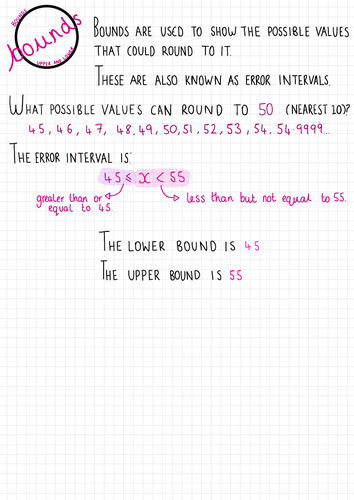 BOUNDS
bounds
UPPER AND LOWER
BOUNDS ARE USED TO SHOW THE POSSIBLE VALUES
THAT COULD ROUND TO IT.
THESE ARE ALSO KNOWN AS ERROR INTERVALS.
WHAT POSSIBLE VALUES CAN ROUND TO 50 (NEAREST 10)?
45, 46, 47, 48, 49, 50, 51, 52, 53, 54, 54.9999...
THE ERROR INTERVAL IS:
45 ≤ x < 55
greater than or equal to 45.
less than but not equal to 55.
THE LOWER BOUND IS 45
THE UPPER BOUND IS 55